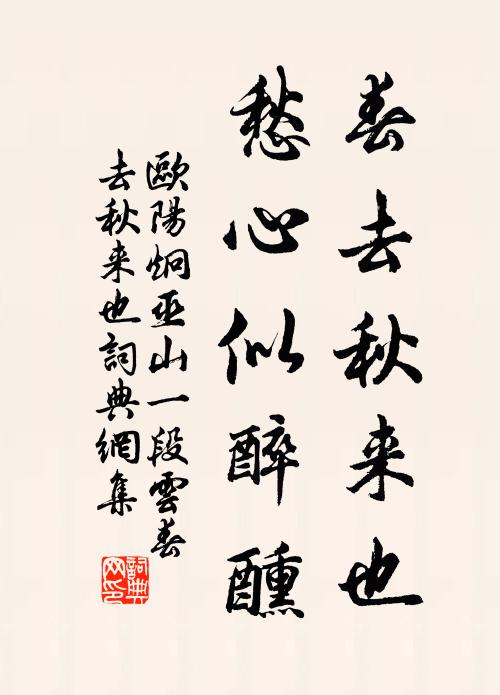 春去秋来也
愁心似醉醺
歐陽炯巫山一段雲春
去秋来也詞典網集
詞典
网印